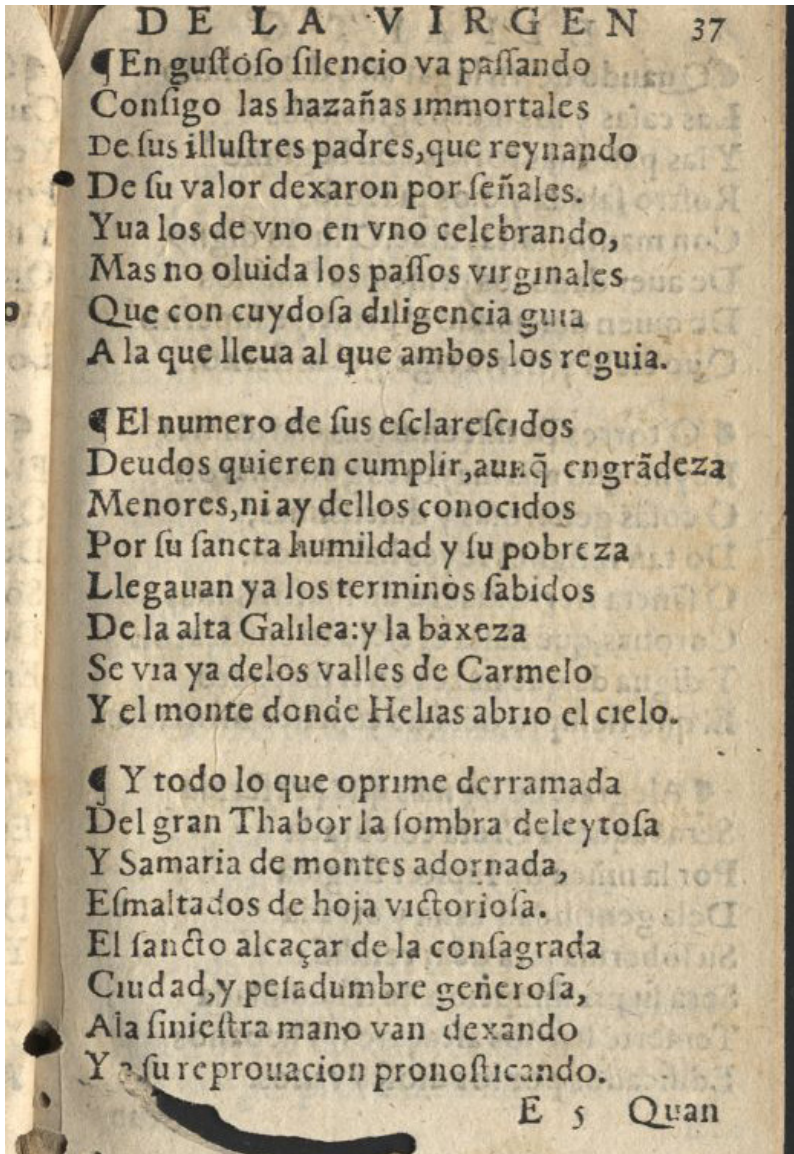 DE LA VIRGEN 37
¶ En gustoso silencio va passando
Consigo las hazañas immortales
De sus illustres padres, que reynando
De su valor dexaron por señales.
Yua los de vno en vno celebrando,
Mas no oluida los passos virginales
Que con cuydosa diligencia guia
A la que lleua al que ambos los reguia.
¶ El numero de sus esclarescidos
Deudos quieren cumplir, aunq̃ engrãdeza
Menores, ni ay dellos conocidos
Por su sancta humildad y su pobreza
Llegauan ya los terminos sabidos
De la alta Galilea: y la baxeza
Se via ya delos valles de Carmelo
Y el monte donde Helias abrio el cielo.
¶ Y todo lo que oprime derramada
Del gran Thabor la sombra deleytosa
Y Samaria de montes adornada,
Esmaltados de hoja victoriosa.
El sancto alcaçar de la consagrada
Ciudad, y pesadumbre generosa,
Ala siniestra mano van dexando
Y a su reprouacion pronosticando.
E 5 Quan